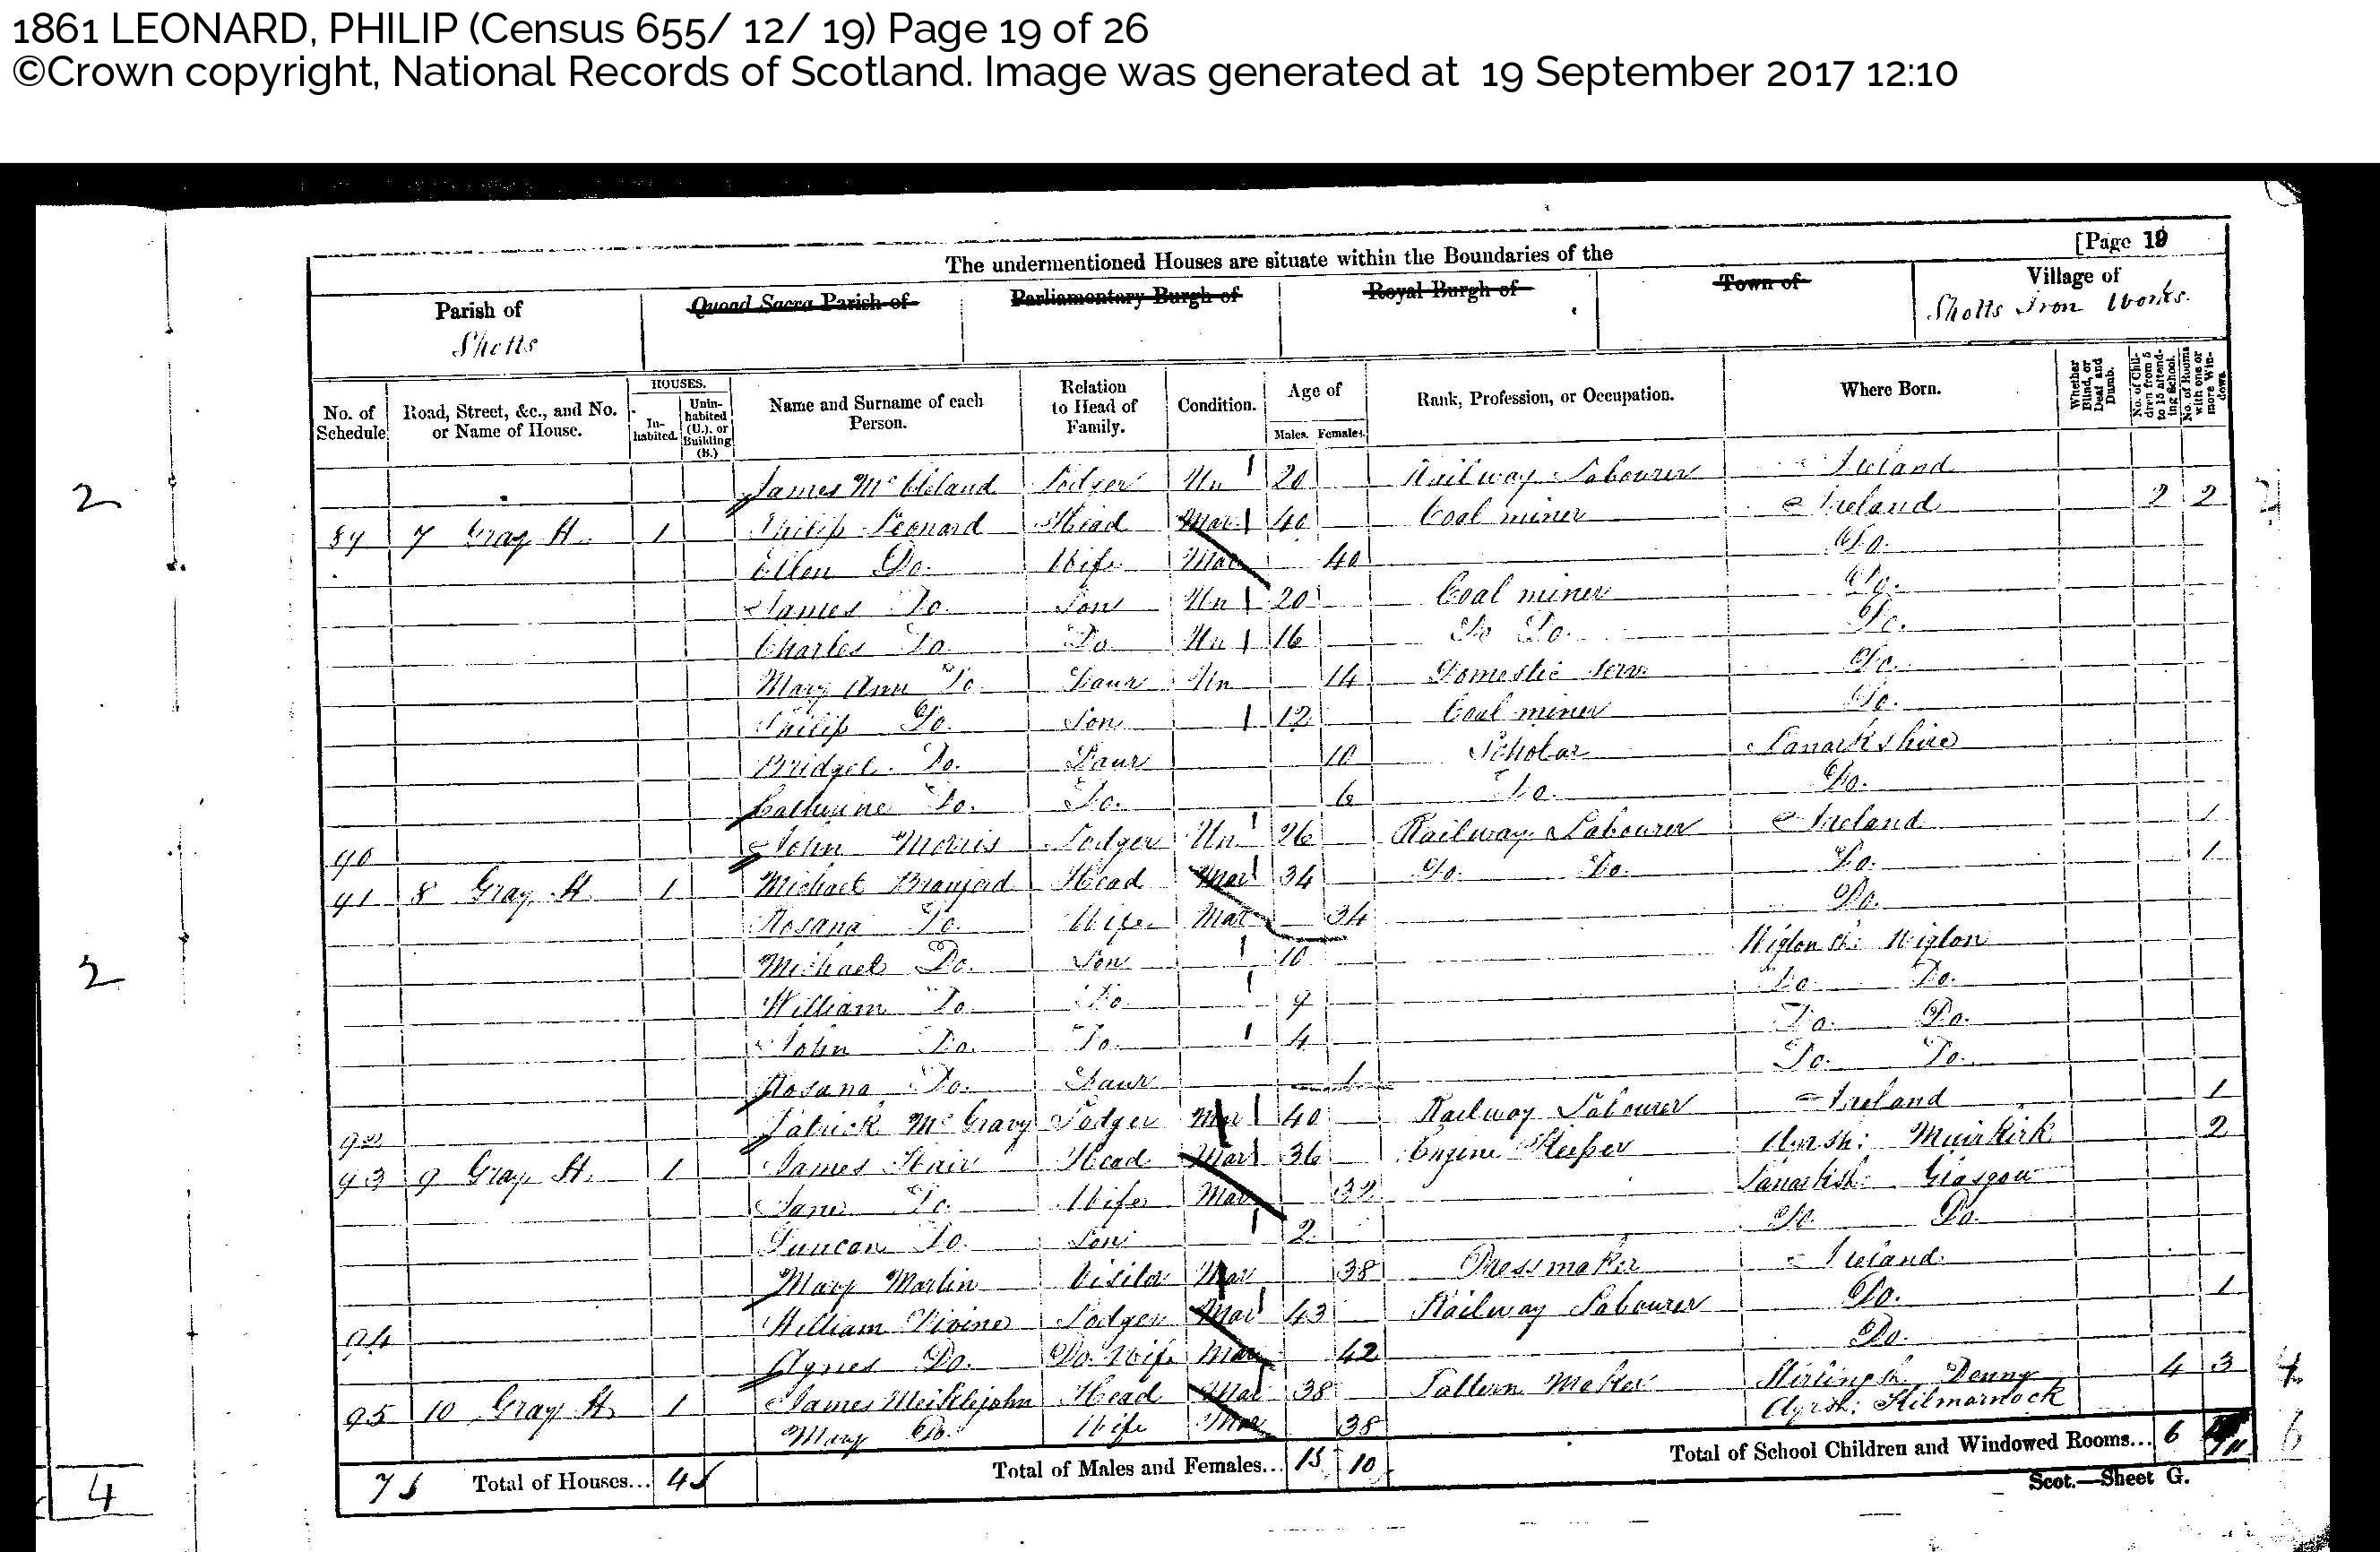 1861 LEONARD, PHILIP (Census 655/ 12/ 19) Page 19 of 26
©Crown copyright, National Records of Scotland. Image was generated at 19 September 2017 12:10
[Page 19
The undermentioned Houses are situate within the Boundaries of the
Parish of Quoad Sacra Parish of Parliamentary Burgh of Royal Burgh of Town of Village of
Shotts Shotts Iron Works.
No. of Schedule Road, Street, &c., and No. or Name of House. HOUSES. In-habited. Unin-habited (U.), or Building (B.) Name and Surname of each Person. Relation to Head of Family. Condition. Age of Males. Females. Rank, Profession, or Occupation. Where Born. Whether Blind, or Deaf and Dumb. No. of Chil-dren from 5 to 15 attend-ing School. No. of Rooms with one or more Win-dows.
James McCleland Lodger Un 20 Railway Labourer Ireland
2 89 7 Gray St. 1 Philip Leonard Head Mar 40 Coal miner Ireland 2 2
Ellen Do. Wife Mar 40 Do.
James Do. Son Un 20 Coal miner Do.
Charles Do. Do. Un 16 Do Do. Do.
Mary Ann Do. Daur Un 14 Domestic Serv. Do.
Philip Do. Son 12 Coal miner Do.
Bridget Do. Daur 10 Scholar Lanarkshire
Catherine Do. Do. 6 Do. Do.
90 John Morris Lodger Un 26 Railway Labourer Ireland 1
91 8 Gray St. 1 Michael Head Mar 34 Do. Do. Do. 1
2 Rosana Do. Wife Mar 34 Do.
Michael Do. Son 10 Wigton sh: Wigton
William Do. Do. 9 Do. Do.
John Do. Do. 4 Do. Do.
Rosana Do. Daur 1 Do. Do.
92 Patrick McGravy Lodger Mar 40 Railway Labourer Ireland 1
93 9 Gray St. 1 James Hair Head Mar 36 Engine Keeper Ayrsh: Muirkirk 2
Jane Do. Wife Mar 32 Lanarksh: Glasgow
Duncan Do. Son 2 Do. Do.
Mary Martin Visitor Mar 38 Dressmaker Ireland
94 William Divine Lodger Mar 43 Railway Labourer Do. 1
Agnes Do. Do. Wife Mar 42 Do.
95 10 Gray St. 1 James Meiklejohn Head Mar 38 Pattern Maker Stirlingsh. Denny 4 3 4
Mary Do. Wife Mar 38 Ayrsh: Kilmarnock
4 7 Total of Houses... 4 Total of Males and Females... 15 10 Total of School Children and Windowed Rooms... 6 11 6
Scot.—Sheet G.